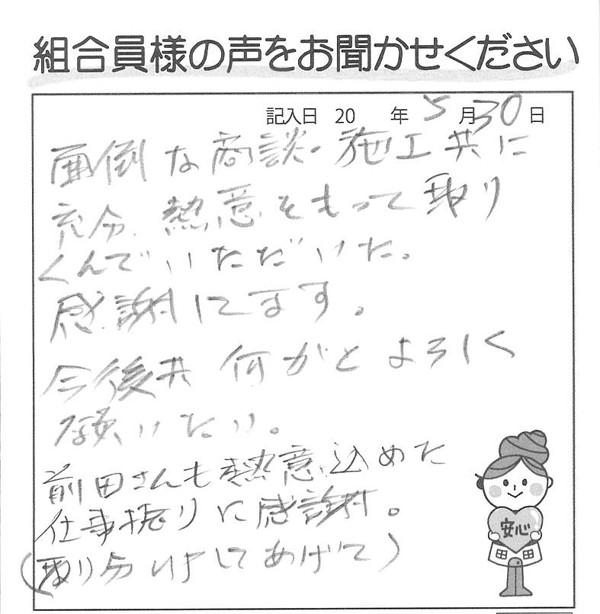 組合員様の声をお聞かせください
記入日 20 年 5 月 30 日
面倒な商談・施工共に
充分、熱意をもって取り
くんでいただいた。
感謝してます。
今後共 何がとよろしく
願いたい。
前田さんも熱意込めた
仕事振りに感謝。
(取り分けしてあげて)
安心